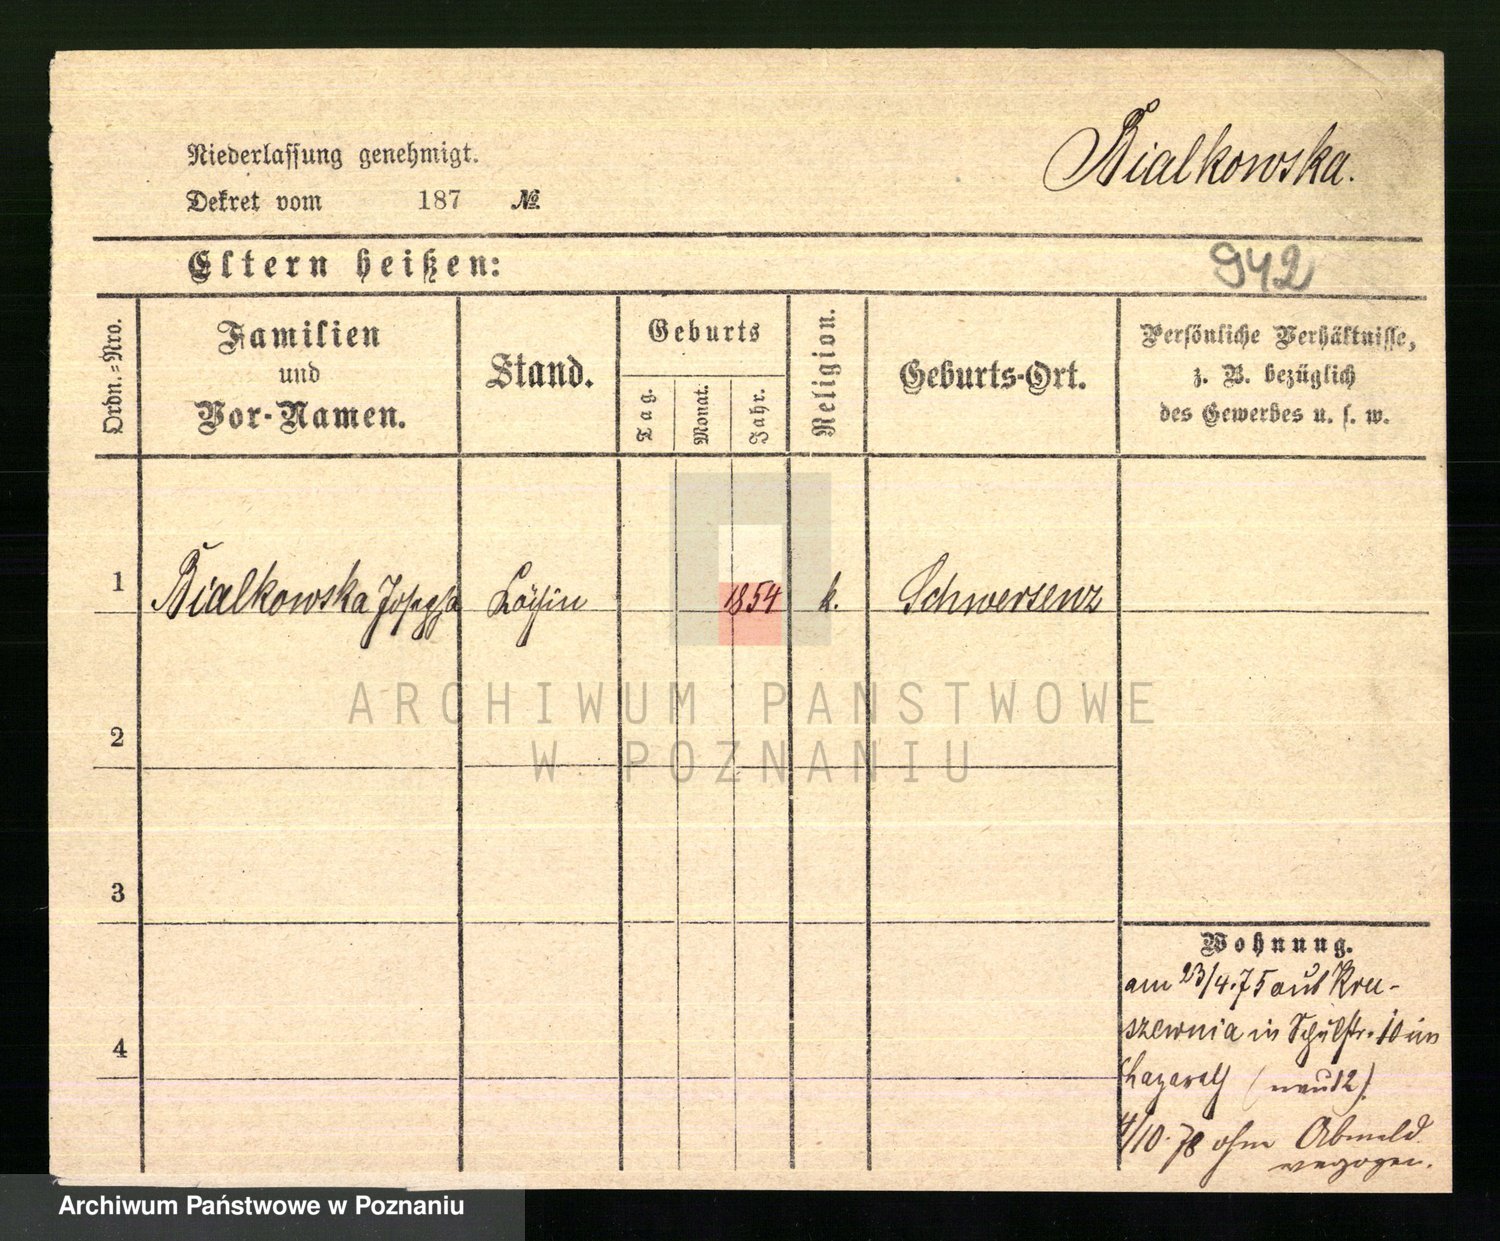 Bialkowska.
Niederlassung genehmigt.
Dekret vom 187 №
Eltern heißen:
942
Ordn.-Nro.
Familien
und
Vor-Namen.
Stand.
Geburts
Tag.
Monat.
Jahr.
Religion.
Geburts-Ort.
Persönliche Verhältnisse,
z. B. bezüglich
des Gewerbes u. s. w.
1 Bialkowska Josepha Köchin 1854 k. Schwersenz
2
3
4
ARCHIWUM PANSTWOWE
W POZNANIU
Wohnung.
am 23/4.75 aus Kru-
szewnia in Schulstr. 10 im
Lazareth (neu 12)
4/10.78 ohne Abmeld
verzogen.
Archiwum Państwowe w Poznaniu